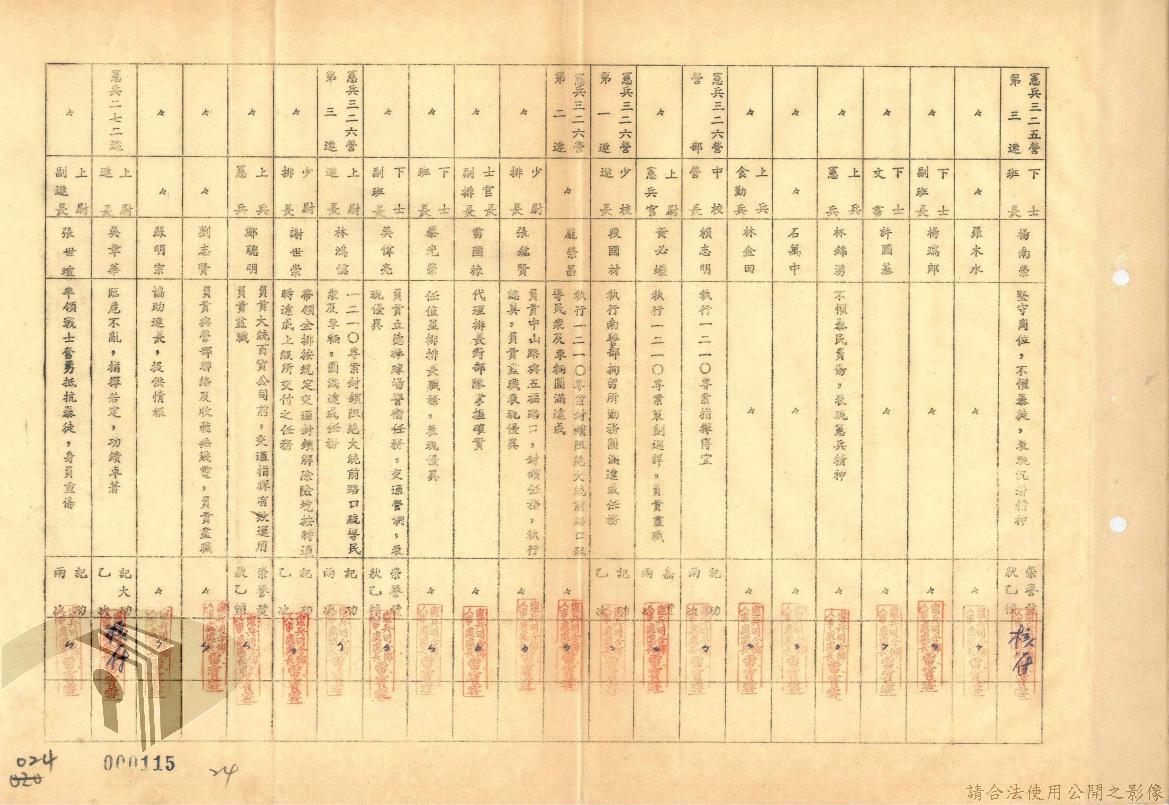 憲兵三二五營第三連 下士班長 楊南榮 堅守崗位,不懼暴徒,表現沉着精神 榮譽獎狀乙幀 核符
〃 〃 羅木水 〃 〃
〃 下士副班長 楊瑞郎 〃 〃
〃 下士文書 許國基 〃 〃
〃 上兵憲兵 林錦湧 不懼暴民負傷,表現憲兵精神 〃
〃 〃 石萬中 〃 〃
〃 上兵食勤兵 林金田 〃 〃
憲兵三二六營營部 中校營長 賴志明 執行一二一〇專案指揮得宜 記功兩次
〃 上尉憲兵官 黃必 執行一二一〇專案策劃週詳,負責盡職 嘉獎兩次
憲兵三二六營第一連 少校連長 段國材 執行南警部拘留所勤務圓滿達成任務 記功乙次
憲兵三二六營第二連 〃 龐榮昌 執行一二一〇專案封鎖阻絕大統前路口疏導民衆及車輛圓滿達成 〃
〃 少尉排長 張銘賢 負責中山路與五福路口,封鎖任務,執行認真,負責盡職表現優異 〃
〃 士官長副排長 雷國樑 代理排長對部隊掌握確實 〃
〃 下士班長 蔡光榮 任值星排排長職務,表現優異 〃
〃 下士副班長 吳偉亮 負責立德棒球場警衛任務,交通管制,表現優異 榮譽獎狀乙幀
憲兵三二六營第三連 上尉連長 林鴻儒 一二一〇專案封鎖阻絕大統前路口疏導民衆及車輛,圓滿達成任務 記功兩次
〃 少尉排長 謝世崇 帶領全排按規定交通封鎖解除險境按時適時達成上級所交付之任務 記功乙次
〃 上兵憲兵 鄭聰明 負責大統百貨公司前,交通指揮有效運用負責盡職 榮譽獎狀乙幀
〃 〃 劉志賢 負責與營部聯絡及收聽無綫電,負責盡職 〃
〃 〃 蘇明宗 協助連長,提供情報 〃
憲兵二七二連 上尉連長 吳章華 臨危不亂,指揮若定,功績卓著 記大功乙次 核符
〃 上尉副連長 張世瑄 率領戰士奮勇抵抗暴徒,身負重傷 記功兩次
024
020
000115
24
請合法使用公開之影像